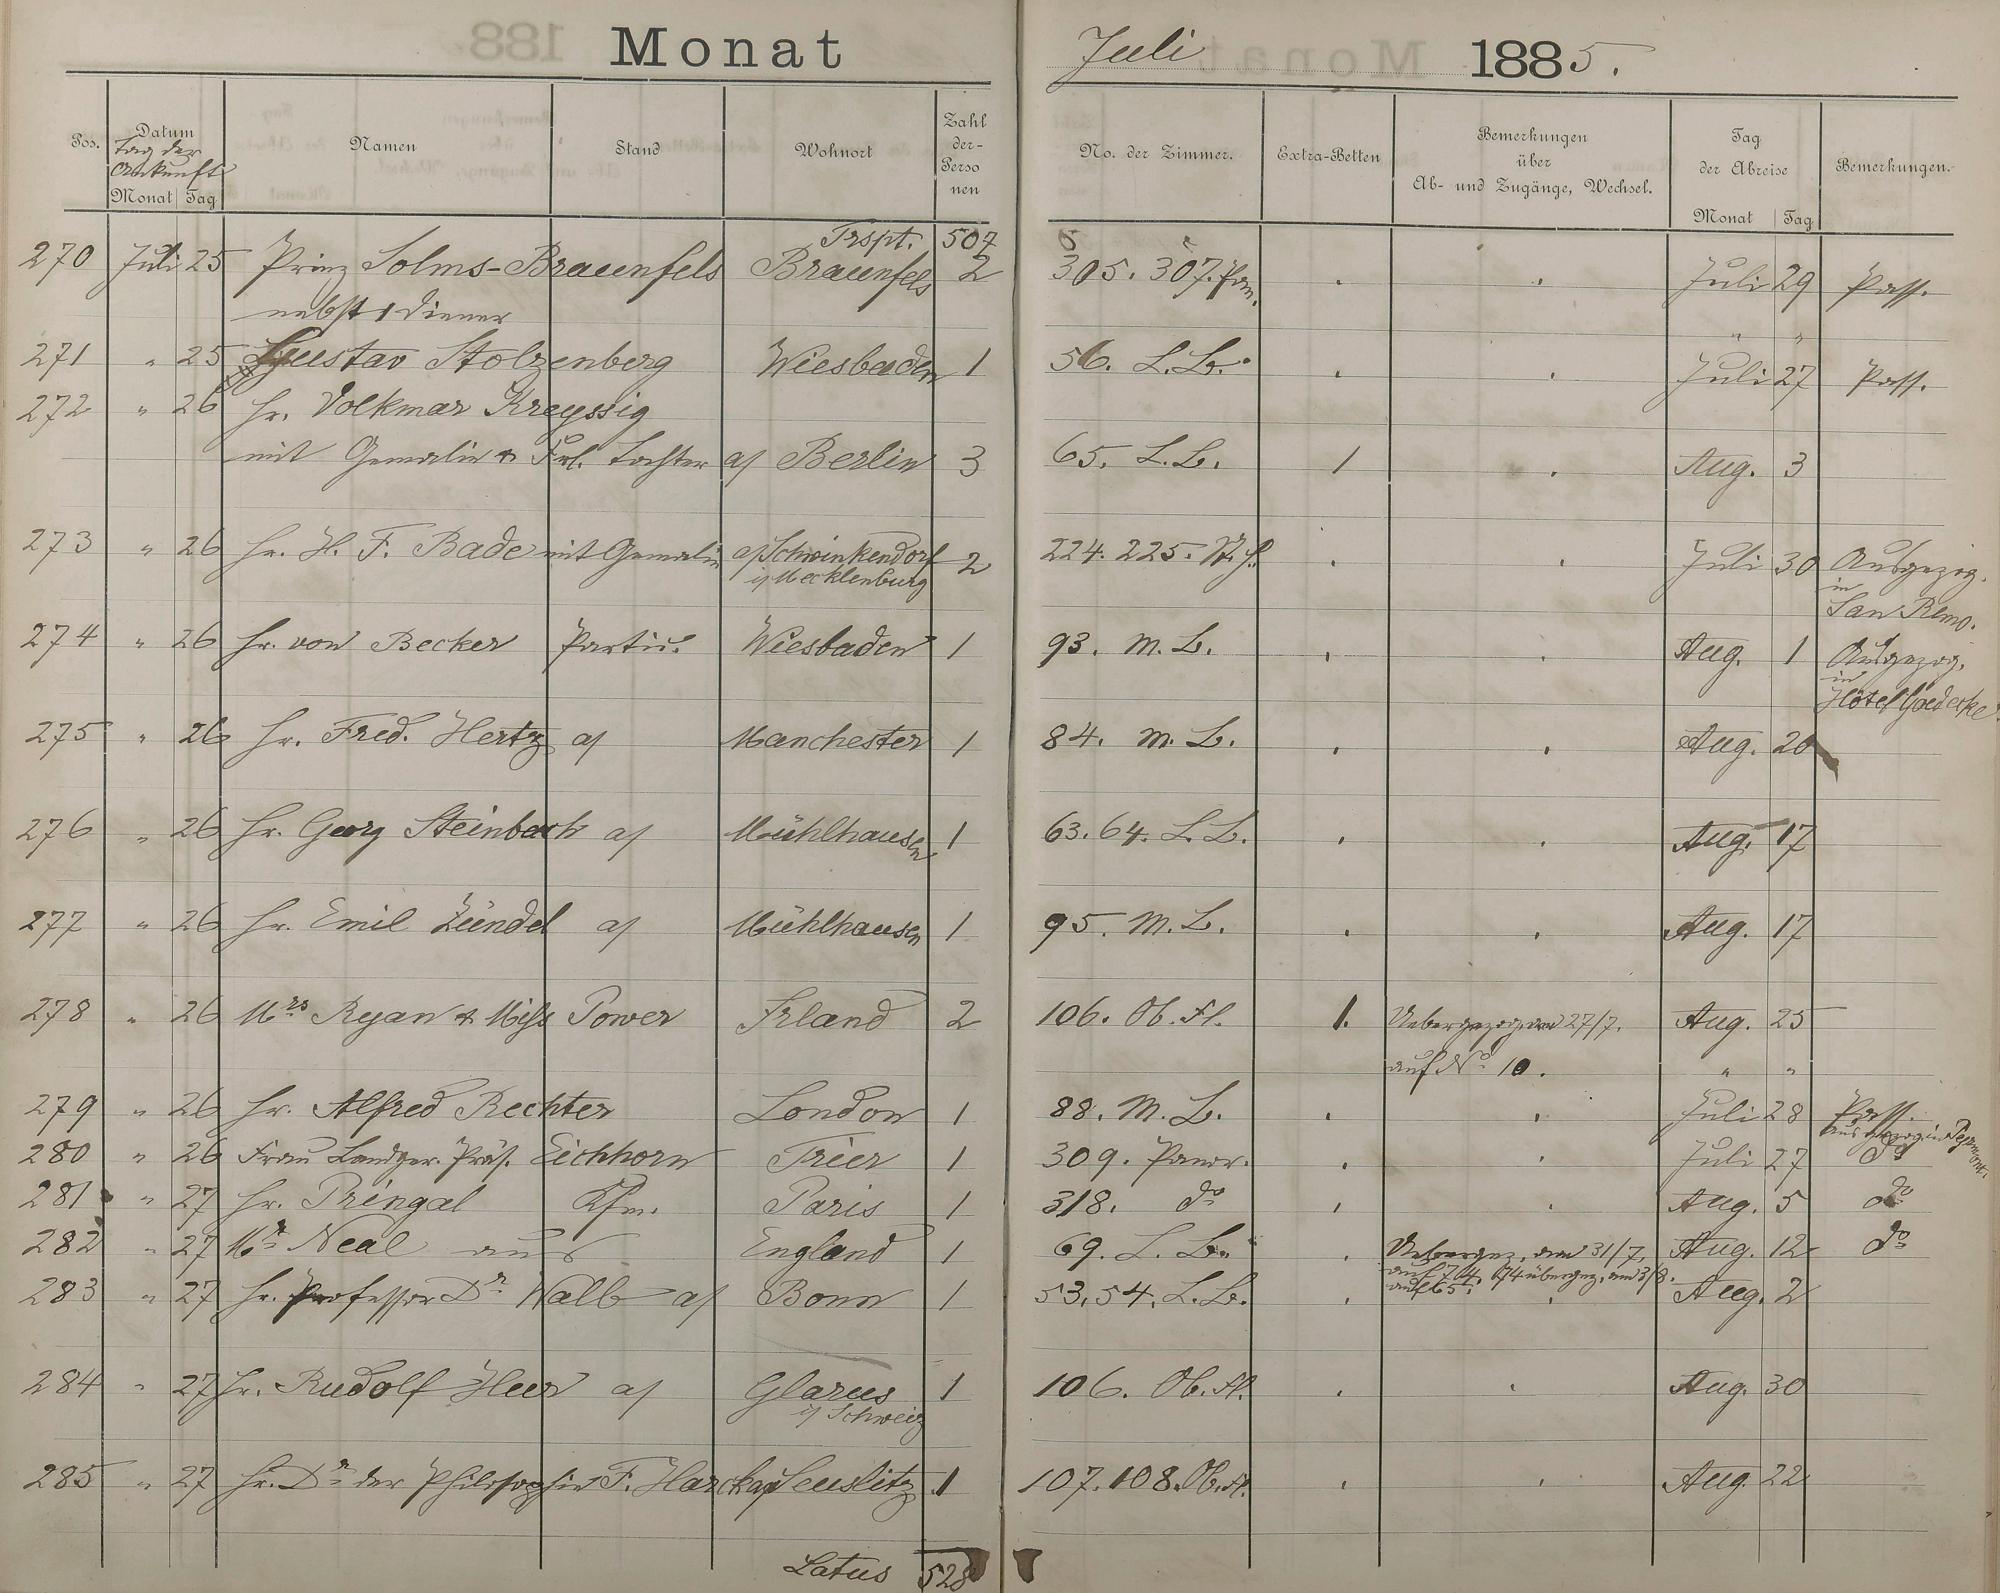 Monat Juli 1885.
Pos. Datum Tag der Ankunft Monat Tag Namen Stand Wohnort Zahl der Perso nen No. der Zimmer. Extra-Betten Bemerkungen über Ab- und Zugänge, Wechsel. Tag der Abreise Monat Tag Bemerkungen.
Trspt. 507
270 Juli 25 Prinz Solms-Braunfels Braunfels 2 305. 307. Pan. Juli 29 Pass.
nebst 1 Diener " "
271 " 25 Gustav Stolzenberg Wiesbaden 1 56. L. L. Juli 27 Pass.
272 " 26 Hr. Volkmar Kreyssig
mit Gemalin & Frl. Tochter a/ Berlin 3 65. L. L. 1 Aug. 3
273 " 26 Hr. H. F. Bade mit Gemalin a/ Schwinkendorf 2 224. 225. Juli 30 Ausgezog.
i/ Mecklenburg in
San Remo.
274 " 26 Hr. von Becker Partic. Wiesbaden 1 93. M. L. Aug. 1 Ausgezog.
in
Hôtel Goedecke
275 " 26 Hr. Fred. Hertz a/ Manchester 1 84. M. L. Aug. 20
276 " 26 Hr. Georg Steinbach a/ Mühlhausen 1 63. 64. L. L. Aug. 17
277 " 26 Hr. Emil Zündel a/ Mühlhausen 1 95. M. L. Aug. 17
278 " 26 Mrs Ryan & Miss Power Irland 2 106. Ob. Fl. 1. Uebergezog. am 27/7. Aug. 25
auf No 10. " "
279 " 26 Hr. Alfred Rechter London 1 88. M. L. Juli 28 Pass.
ausgezog. in Pegamont.
280 " 26 Frau Landger. Präs. Eichhorn Trier 1 309. Panor. Juli 27 do
281 " 27 Hr. Pringal Kfm. Paris 1 318. do Aug. 5 do
282 " 27 Mr Neal aus England 1 69. L. L. Uebergez. am 31/7. Aug. 12 do
auf 74. 74 übergez. am 3/8.
auf 65.
283 " 27 Hr. Professor Dr Walb a/ Bonn 1 53. 54. L. L. Aug. 2
284 " 27 Hr. Rudolf Heer a/ Glarus 1 106. Ob. Fl. Aug. 30
i/ Schweiz
285 " 27 Hr. Dr der Philosophie F. Harck a/ Seuslitz 1 107. 108. Ob. Fl. Aug. 22
Latus 528